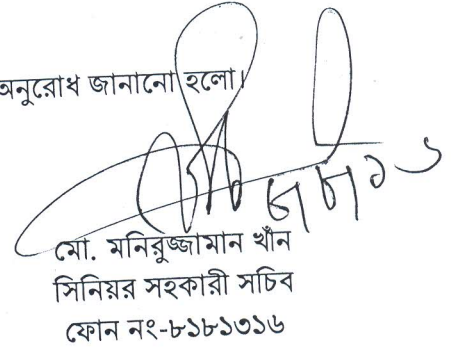 অনুরোধ জানানো হলো।
মো. মনিরুজ্জামান খাঁন
সিনিয়র সহকারী সচিব
ফোন নং-৮১৮১৩১৬